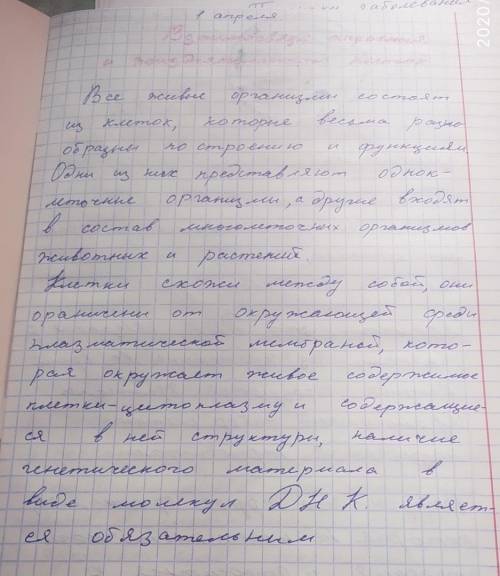 заболевания
1 апреля
Взаимосвязь строения
и
Все живые организмы состоят
из клеток, которые весьма разно
образны по строению и функциям.
Одни из них представляют однок-
леточные организмы, а другие входят
в состав многолеточных организмов
животных и растений.
Клетки схожи между собой, они
ораничени от окружающей среди
плазматической мембраной, кото-
рая окружает живое содержимое
клетки-цитоплазму и содержащие-
ся в ней структури, наличие
генетического материала в
виде молекул ДНК. являет-
ся обязательним
2020/